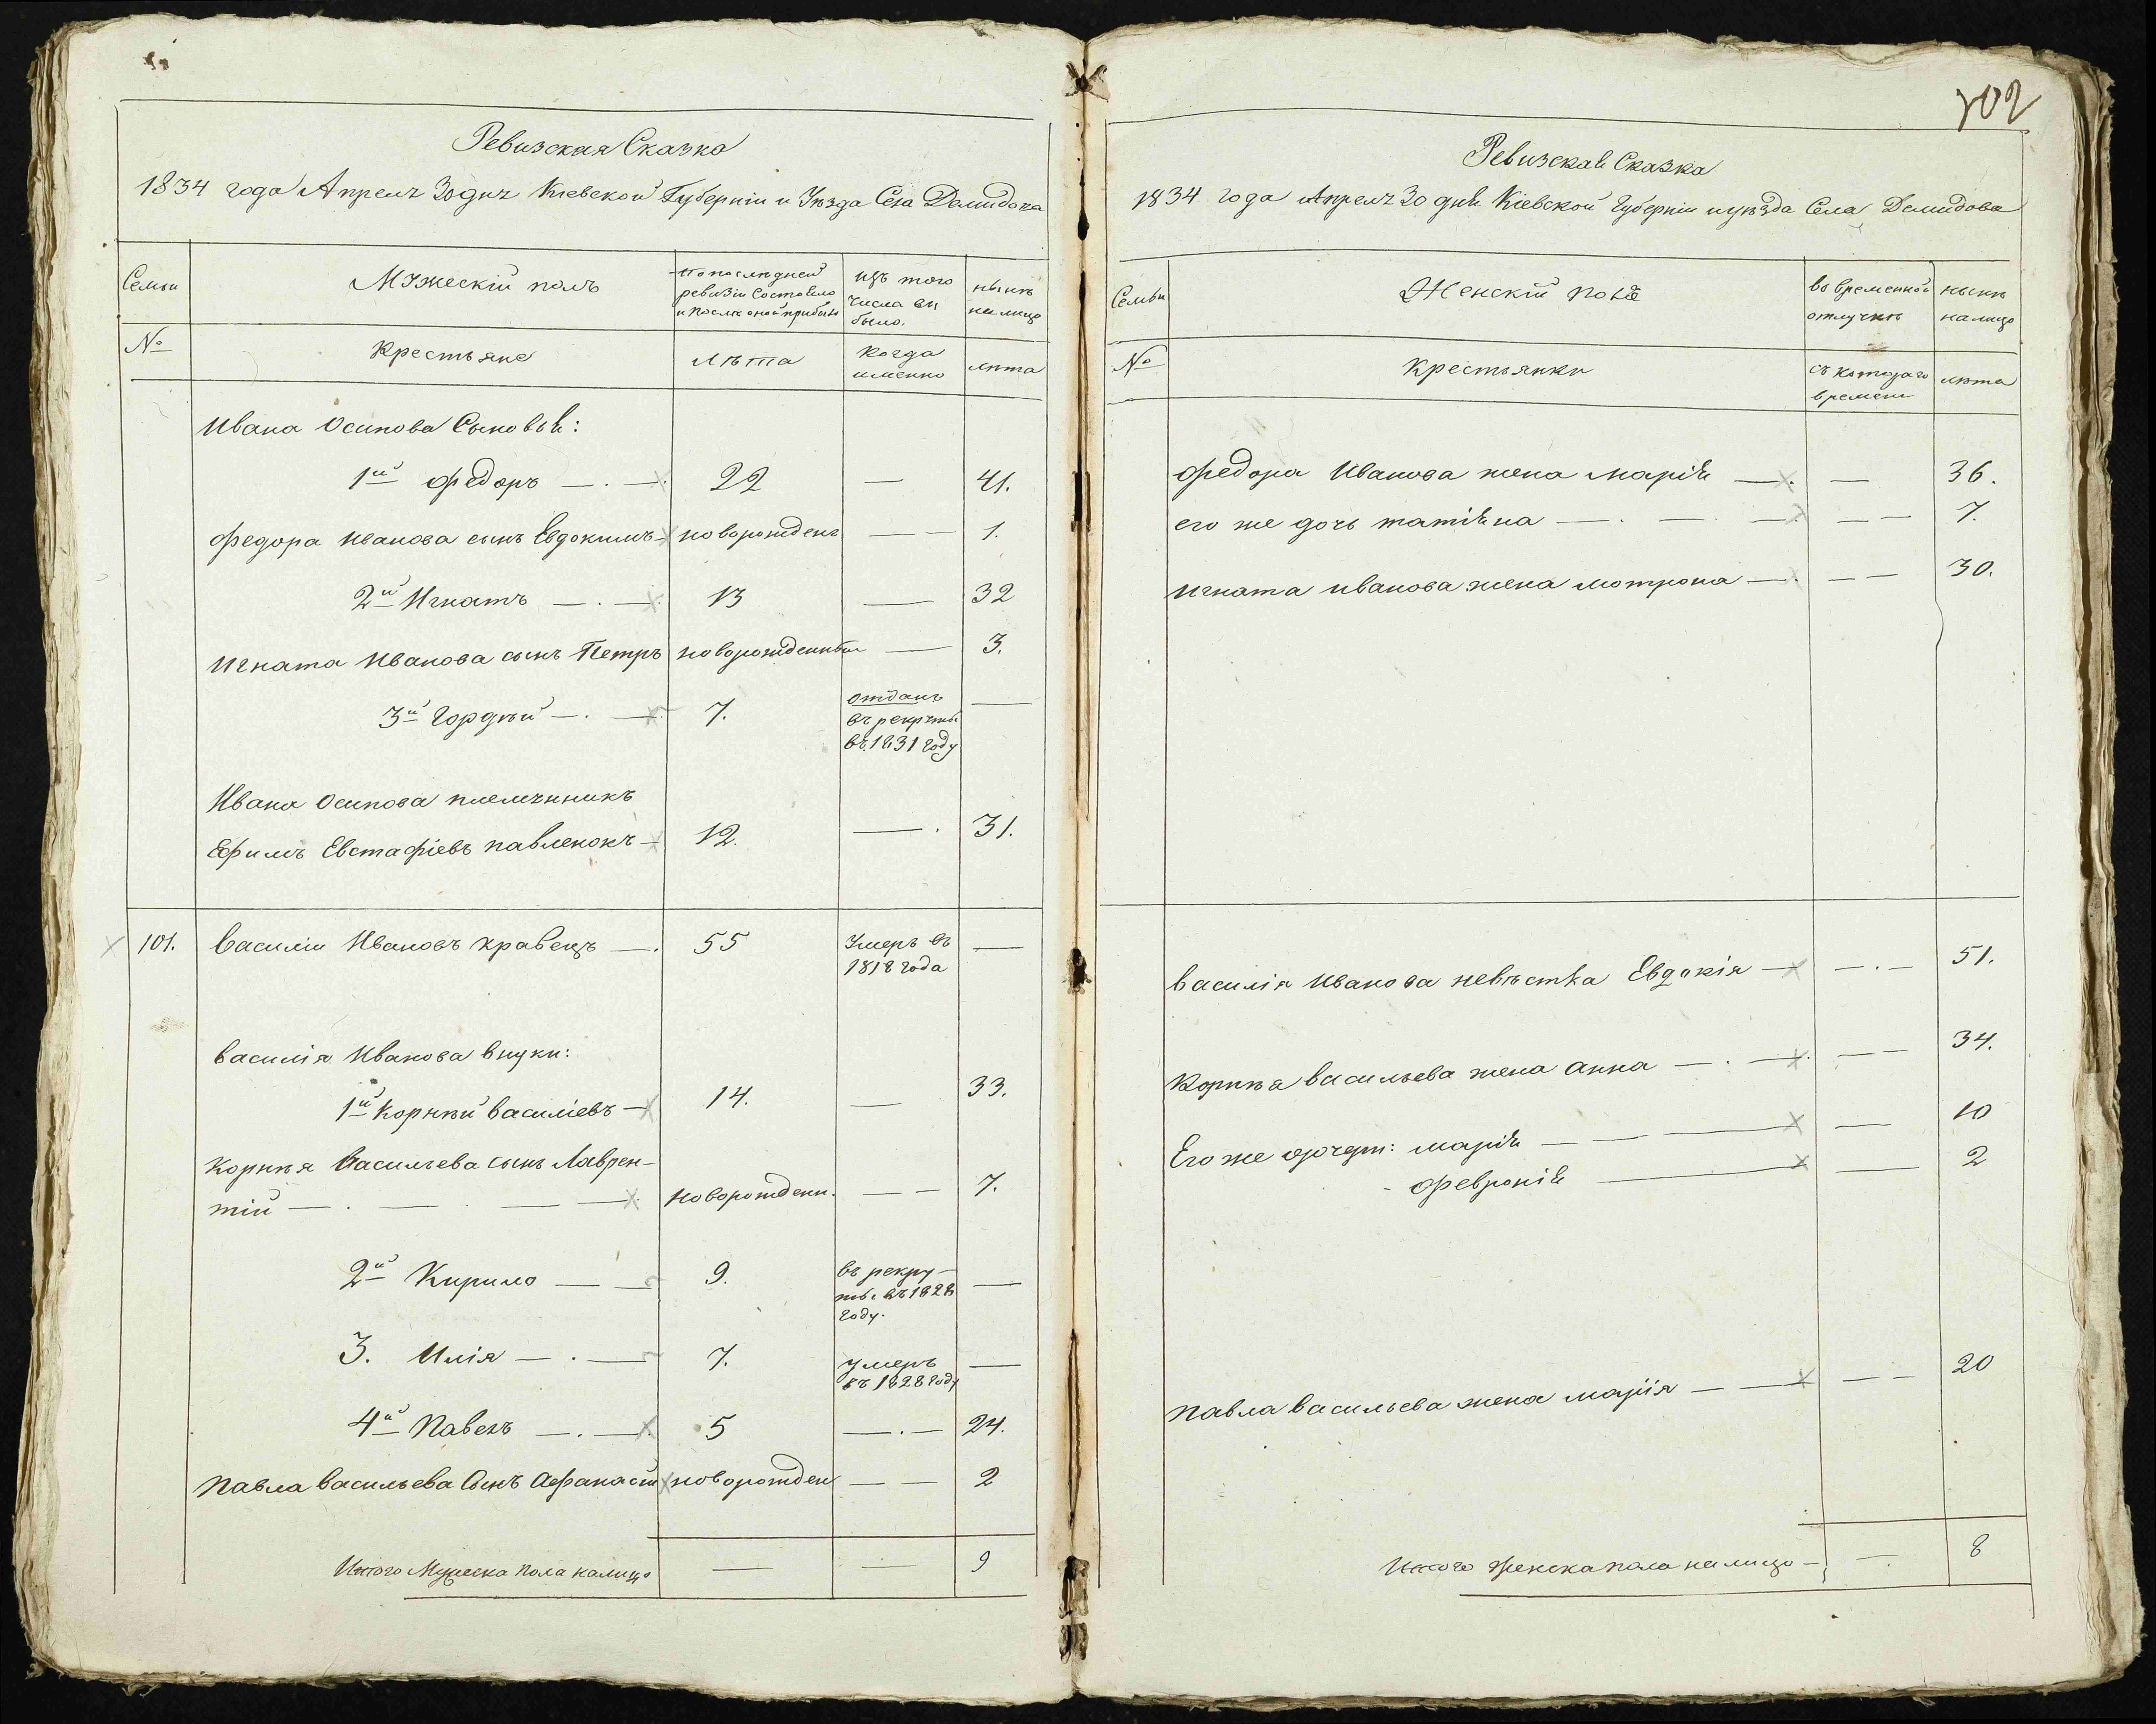 Ревизская Сказка
1834 года Апреля 30 дня Кіевской Губерніи и Уѣзда Села Демидова
Семьи
Мужескій полъ
По послѣдней ревизіи состояло и послѣ оной прибыло
Изъ того числа выбыло.
нынѣ на лицо
№
Крестьяне
Лѣта
когда именно
лѣта
Ивана Осипова Сыновья:
1й Федоръ — . — 22 — 41.
Федора Иванова сынъ Евдокимъ новорожденъ — — 1.
2й Игнатъ — . — 13 — 32
Игната Иванова сынъ Петръ новорожденный — 3.
3й Гордѣй — . — 7. отданъ въ рекруты въ 1831 году —
Ивана Осипова племянникъ
Ефимъ Евстафіевъ павленокъ — 12. — . 31.
101. Василій Ивановъ кравецъ — . 55 Умеръ въ 1818 года —
Василія Иванова внуки:
1й Корнѣй Василіевъ — 14. — 33.
Корнѣя Васильева сынъ Лаврен-
тій — . — . — — новорожденн. — — 7.
2й Кирило — — 9. въ рекру-ты въ 1828 году. —
3. Илія — . — 7. умеръ въ 1828 году —
4й Павелъ — . — 5 — . — 24.
Павла Васильева Сынъ Афанасій новорожден — — 2
Итого Мужеска пола налицо — — 9
102
Ревизская Сказка
1834 года Апреля 30 дня Кіевской Губерніи и уѣзда Села Демидова
Семьи
Женскій полъ
во временной отлучкѣ
нынѣ на лицо
№
Крестьянки
съ котораго времени
лѣта
Федора Иванова жена Марія — . — 36.
его же дочь татіяна — . — . — . — — 7.
Игната иванова жена мотрона — . — — 30.
Василія Иванова невѣстка Евдокія — — . — 51.
Корнѣя Васильева жена Анна — . — . — — 34.
Его же дочери: марія — — — — 10
Февронія — — 2
Павла Васильева жена марія — — — — 20
Итого женска пола налицо — — 8